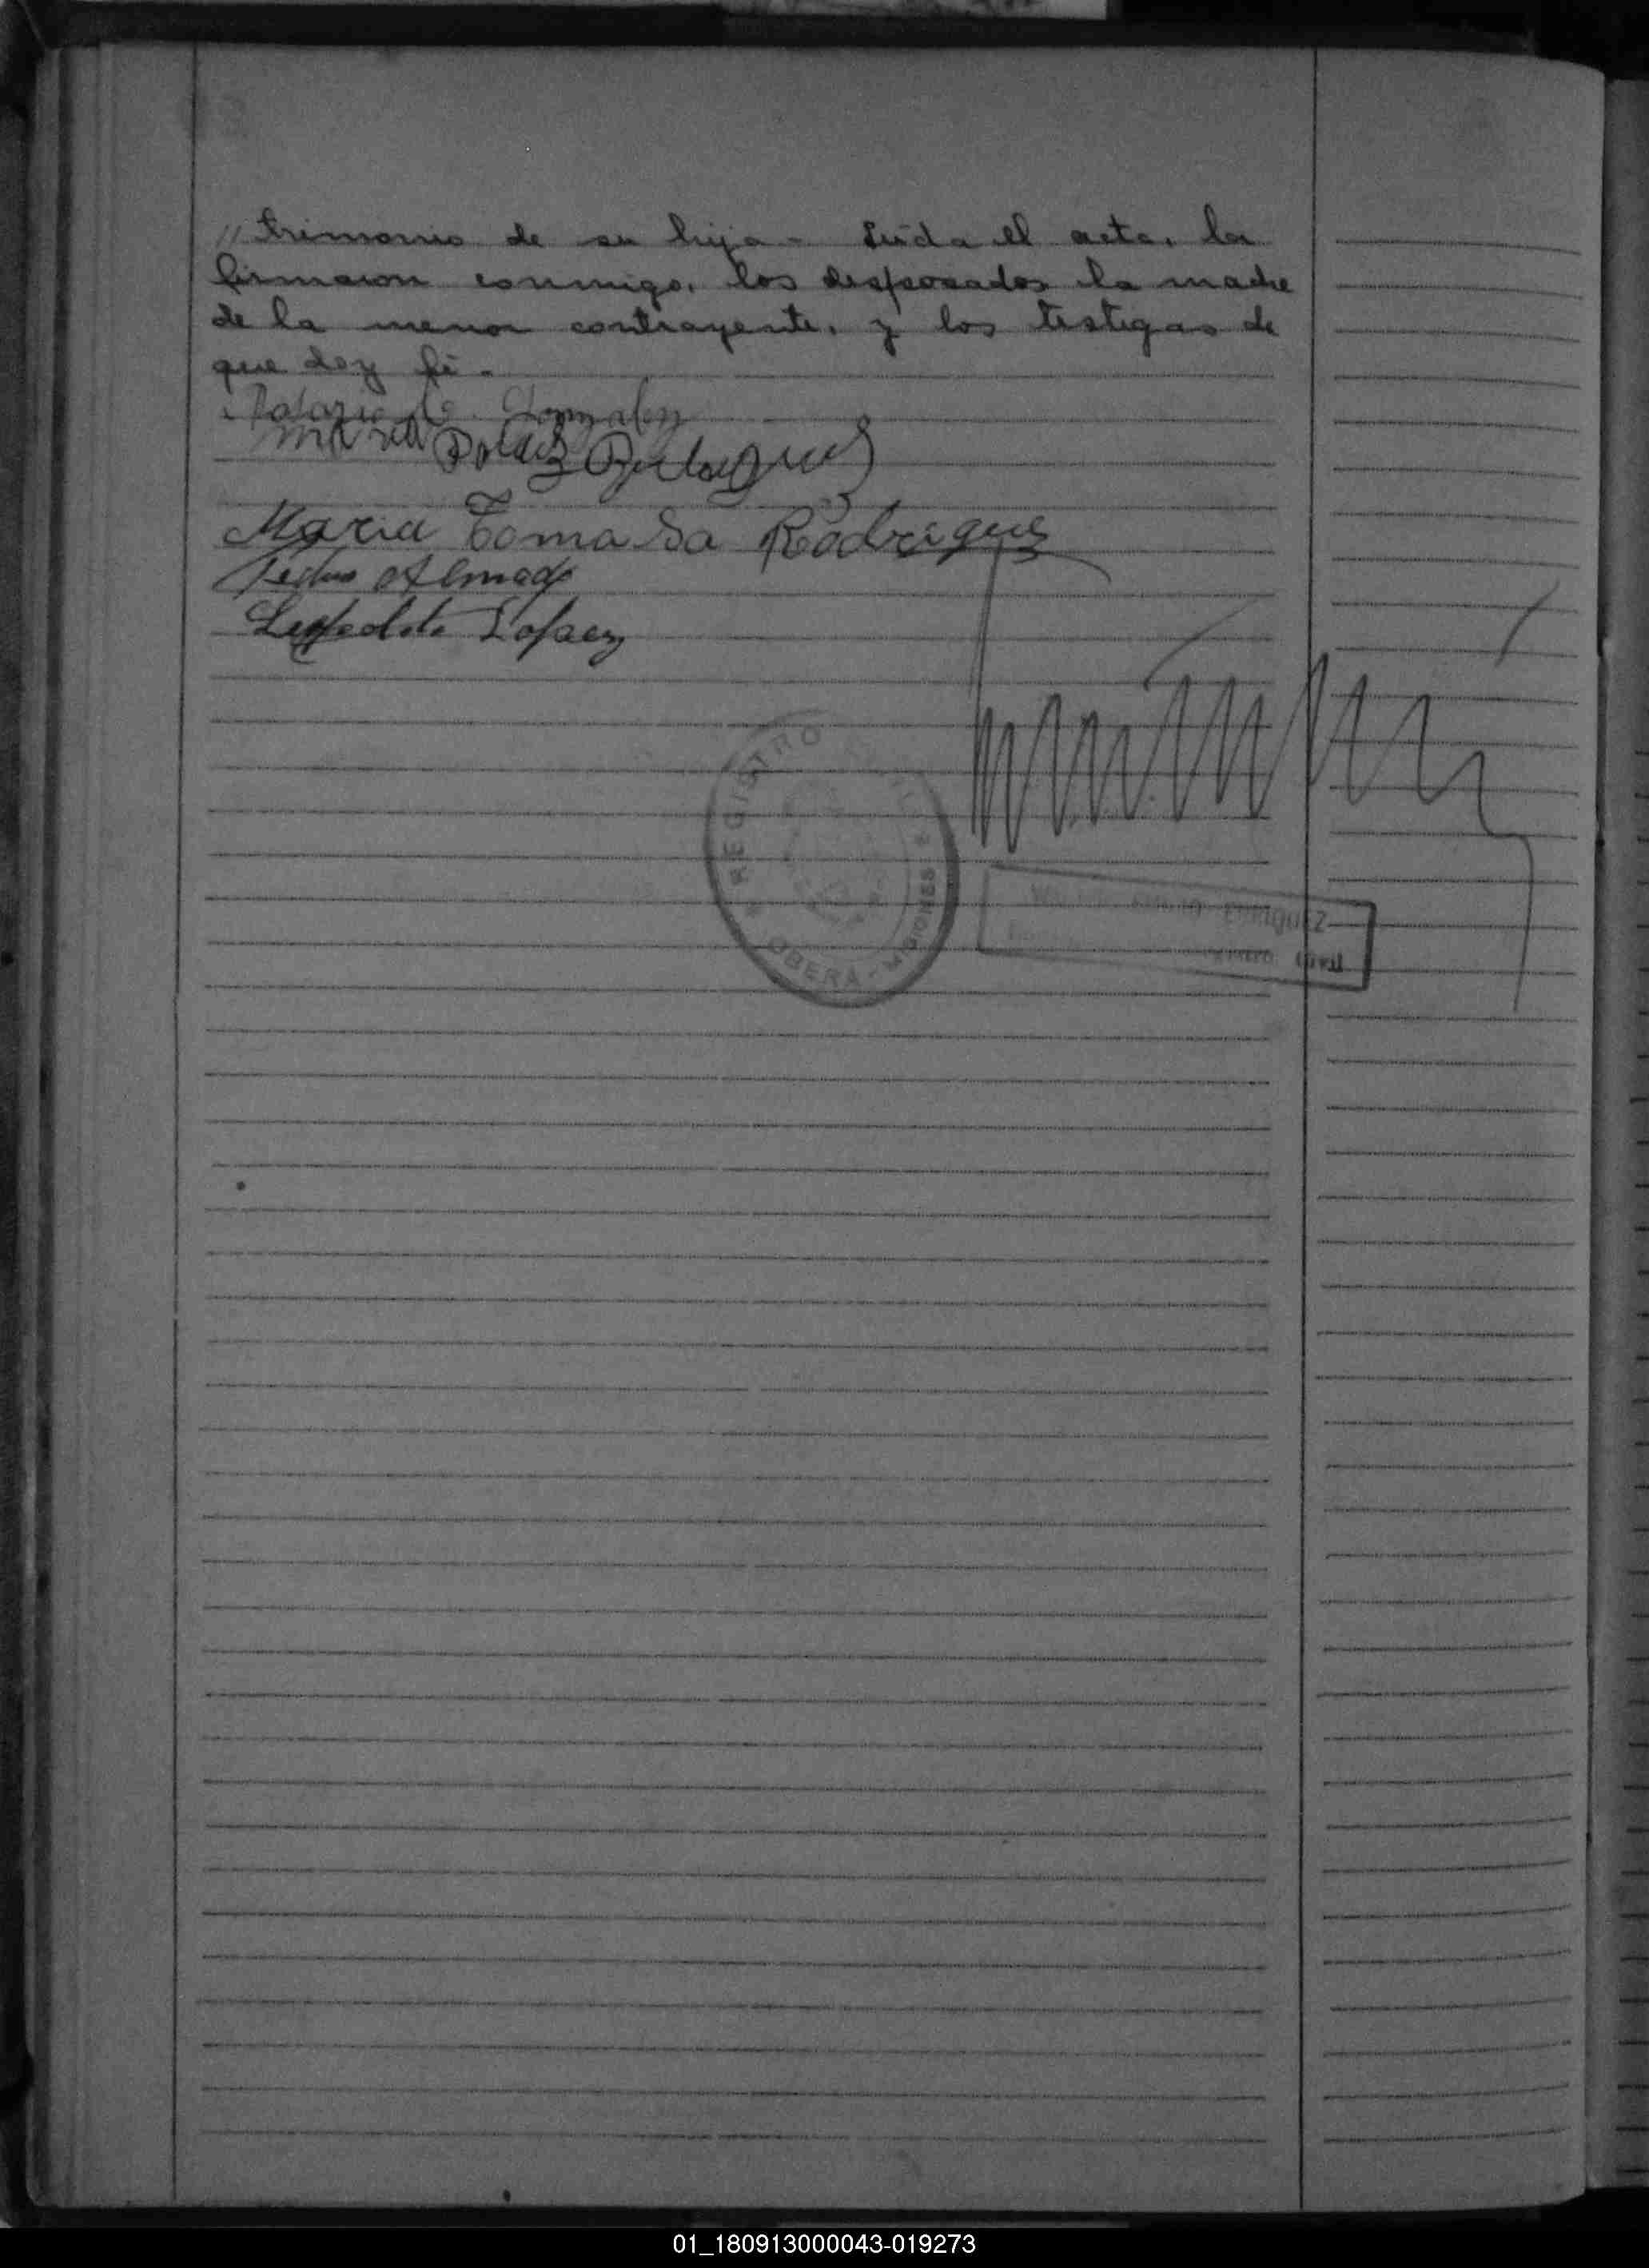 // trimonio de su hija - Leida el acta, la
firmaron conmigo, los desposados la madre
de la menor contrayente, y los testigos de
que doy fé.
Gonzalez
Maria Rodrigues
Maria Tomasa Rodrigues
Pedro Almada
Lopez
REGISTRO
OBERÁ - MISIONES
ENRIQUEZ
Civil
01_180913000043-019273